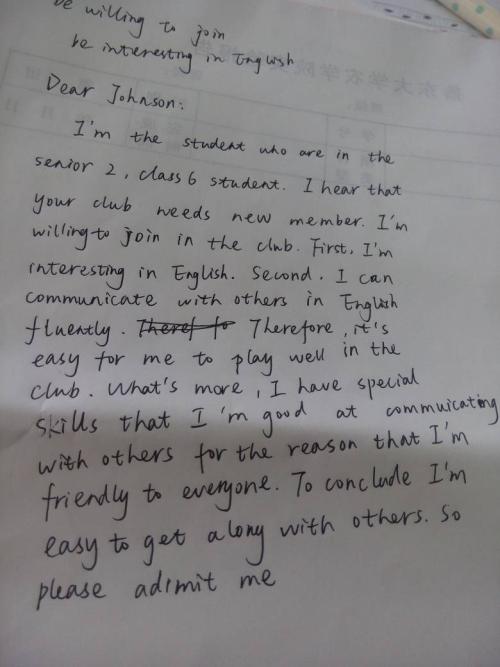 be willing to join
be interesting in English
Dear Johnson:
I'm the student who are in the
senior 2, class 6 student. I hear that
your club needs new member. I'm
willing to join in the club. First, I'm
interesting in English. Second. I can
communicate with others in English
fluently. Theref fo Therefore, it's
easy for me to play well in the
club. What's more, I have special
skills that I'm good at commuicating
with others for the reason that I'm
friendly to everyone. To conclude I'm
easy to get along with others. So
please adimit me